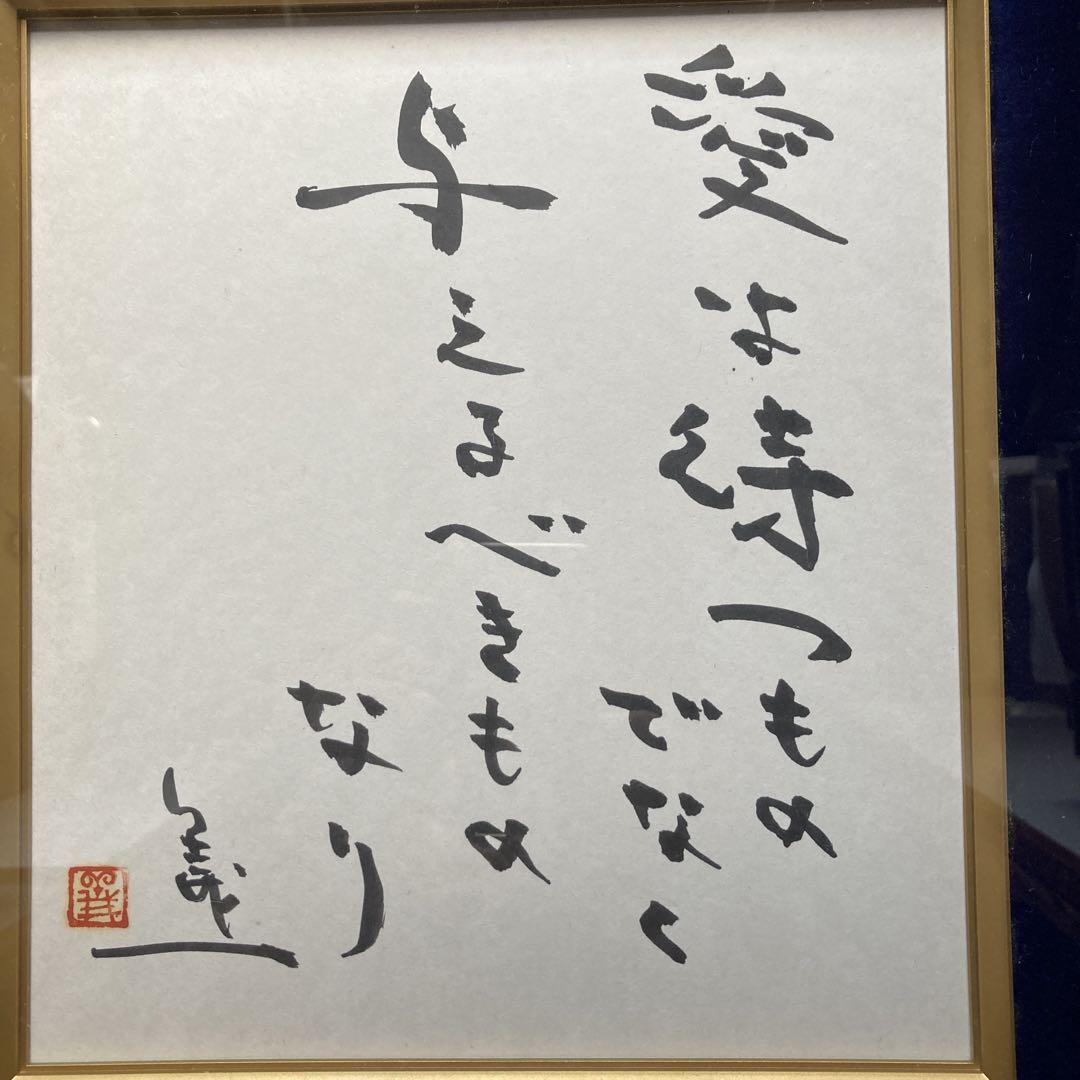 愛は待つもの
でなく
与えるべきもの
なり
義一
義